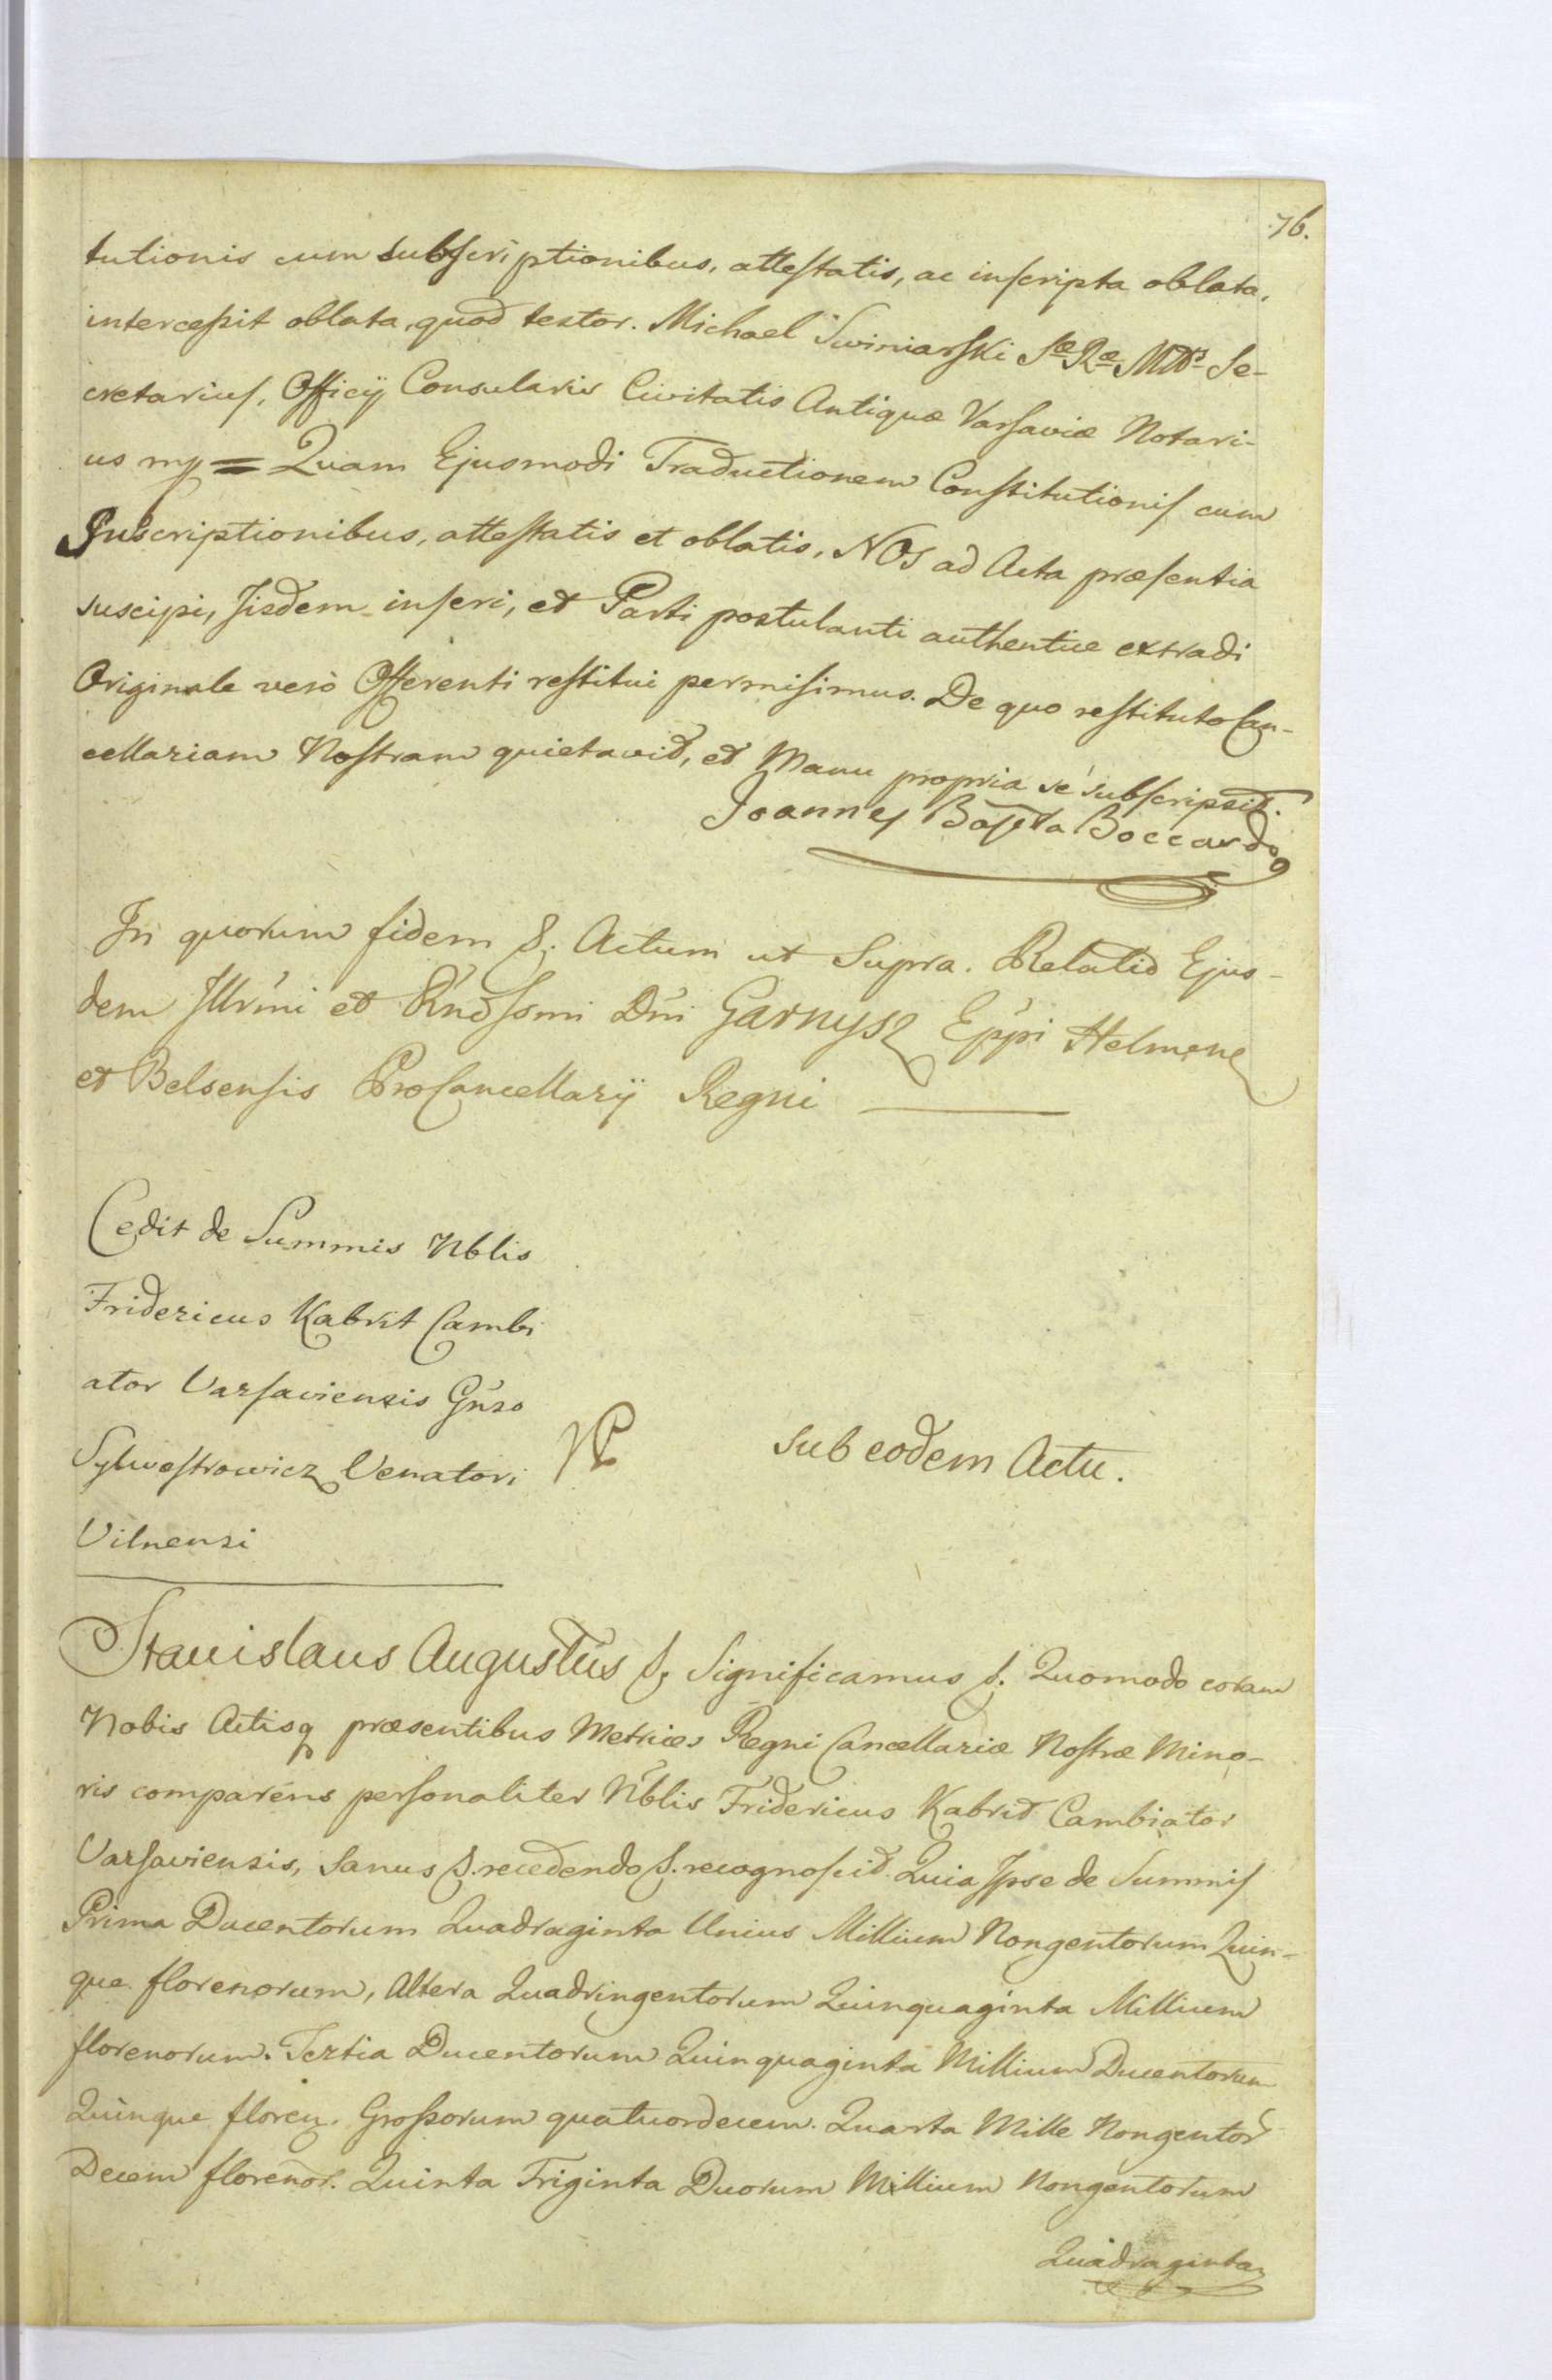 76.
tutionis cum subscriptionibus, attestatis, ac inscripta oblata,
intercessit oblata, quod testor. Michael Swiniarski Sæ Ræ Mttis Se-
cretarius, Officij Consularis Civitatis Antiquæ Varsaviæ Notari-
us mp = Quam Ejusmodi Traductionem Constitutionis cum
Suscriptionibus, attestatis et oblatis, NOS ad Acta præsentia
suscipi, Jisdem inseri, et Parti postulanti authentice extradi
Originale verò Offerenti restitui permisimus. De quo restituto Can-
cellariam Nostram quietavit, et Manu propria sé subscripsit.
Joannes Bapt̃ta Boccardo
In quorum fidem &. Actum ut Supra. Relatio Ejus-
dem Illrmi et Rndssmi Dni Garnysz Eppi Helmens
et Belsensis ProCancellarij Regni
Cedit de Summis Nblis
Fridericus Kabrit Cambi
ator Varsaviensis Gnso
Sylwestrowicz Venatori
Vilnensi
sub eodem Actu.
Stanislaus Augustus &. Significamus &. Quomodo coram
Nobis Actisq præsentibus Metrices Regni Cancellariæ Nostræ Mino-
ris comparens personaliter Nblis Fridericus Kabrit Cambiator
Varsaviensis, sanus &. recedendo &. recognoscit. Quia Ipse de Summis
Prima Ducentorum Quadraginta Unius Millium Nongentorum Quin-
que florenorum, Altera Quadringentorum Quinquaginta Millium
florenorum. Tertia Ducentorum Quinquaginta Millium Ducentorum
Quinque floren. Grossorum quatuordecem. Quarta Mille Nongentor
Decem florenor. Quinta Triginta Duorum Millium Nongentorum
Quadraginta